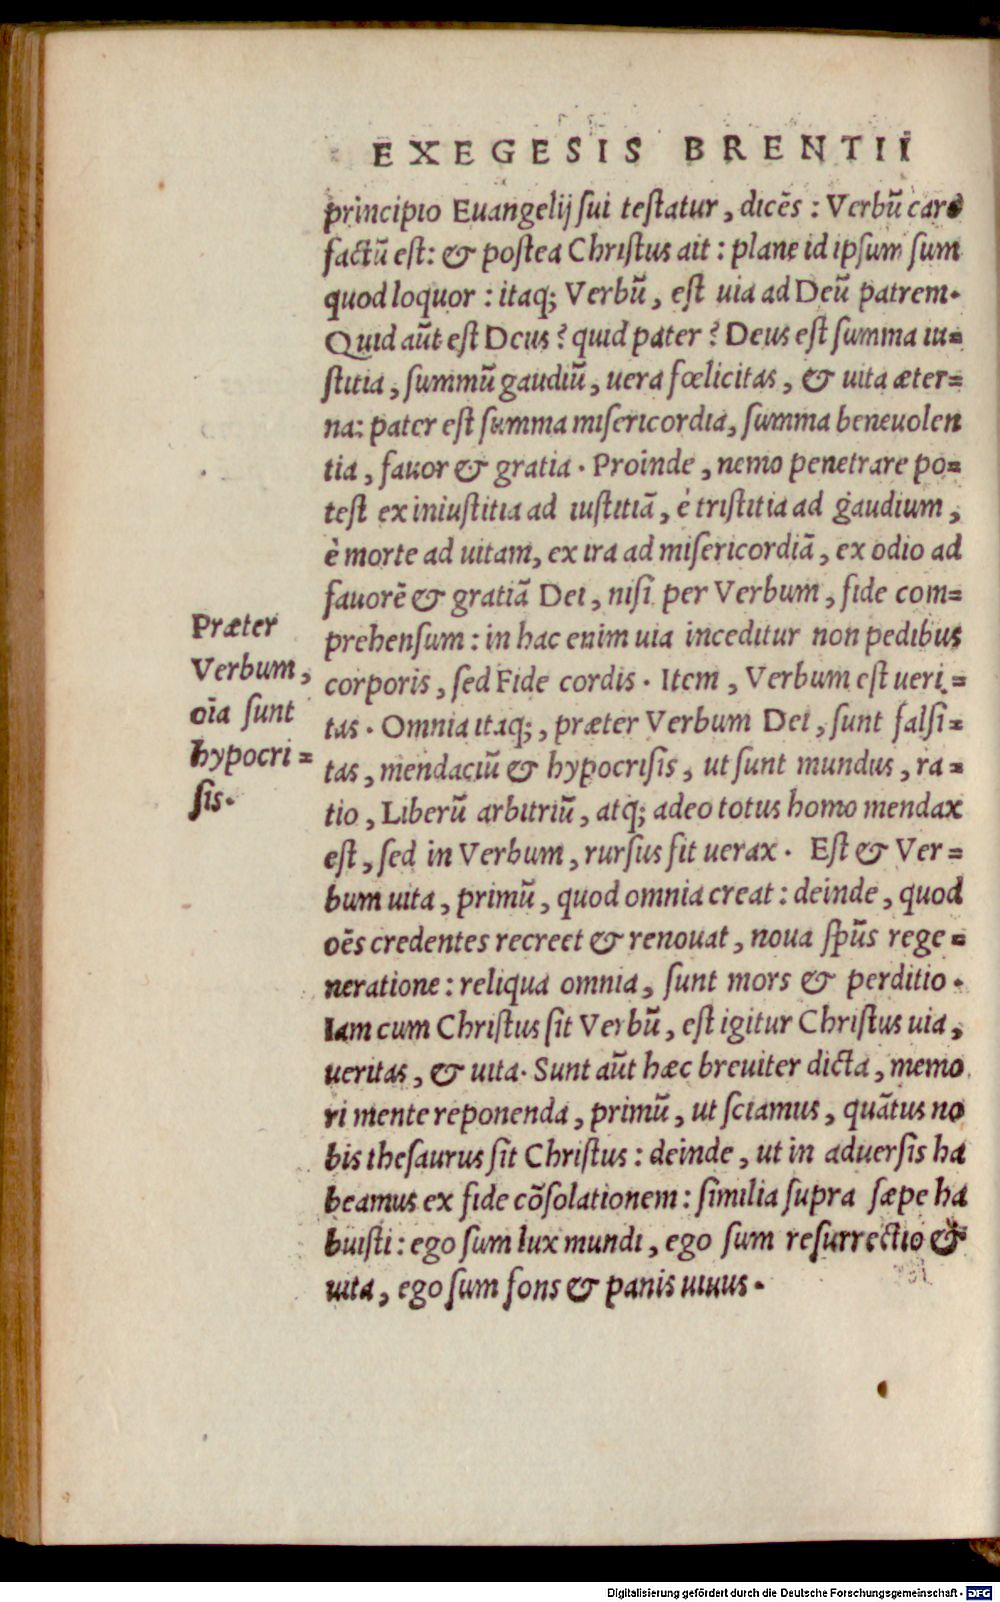 EXEGESIS BRENTII
principio Euangelij sui testatur, dicẽs: Verbũ caro
factũ est: & postea Christus ait: plane id ipsum sum
quod loquor: itaq; Verbũ, est uia ad Deũ patrem.
Quid aũt est Deus? quid pater? Deus est summa iu=
stitia, summũ gaudiũ, uera fœlicitas, & uita æter=
na: pater est summa misericordia, summa beneuolen
tia, fauor & gratia. Proinde, nemo penetrare po=
test ex iniustitia ad iustitiã, è tristitia ad gaudium,
è morte ad uitam, ex ira ad misericordiã, ex odio ad
fauorẽ & gratiã Dei, nisi per Verbum, fide com=
prehensum: in hac enim uia inceditur non pedibus
corporis, sed Fide cordis. Item, Verbum est ueri=
tas. Omnia itaq;, præter Verbum Dei, sunt falsi=
tas, mendaciũ & hypocrisis, ut sunt mundus, ra=
tio, Liberũ arbitriũ, atq; adeo totus homo mendax
est, sed in Verbum, rursus fit uerax. Est & Ver=
bum uita, primũ, quod omnia creat: deinde, quod
oẽs credentes recreet & renouat, noua spũs rege=
neratione: reliqua omnia, sunt mors & perditio.
Iam cum Christus sit Verbũ, est igitur Christus uia,
ueritas, & uita. Sunt aũt hæc breuiter dicta, memo
ri mente reponenda, primũ, ut sciamus, quãtus no
bis thesaurus sit Christus: deinde, ut in aduersis ha
beamus ex fide cõsolationem: similia supra sæpe ha
buisti: ego sum lux mundi, ego sum resurrectio &
uita, ego sum fons & panis uiuus.
Præter
Verbum,
oĩa sunt
hypocri=
sis.
Digitalisierung gefördert durch die Deutsche Forschungsgemeinschaft - DFG